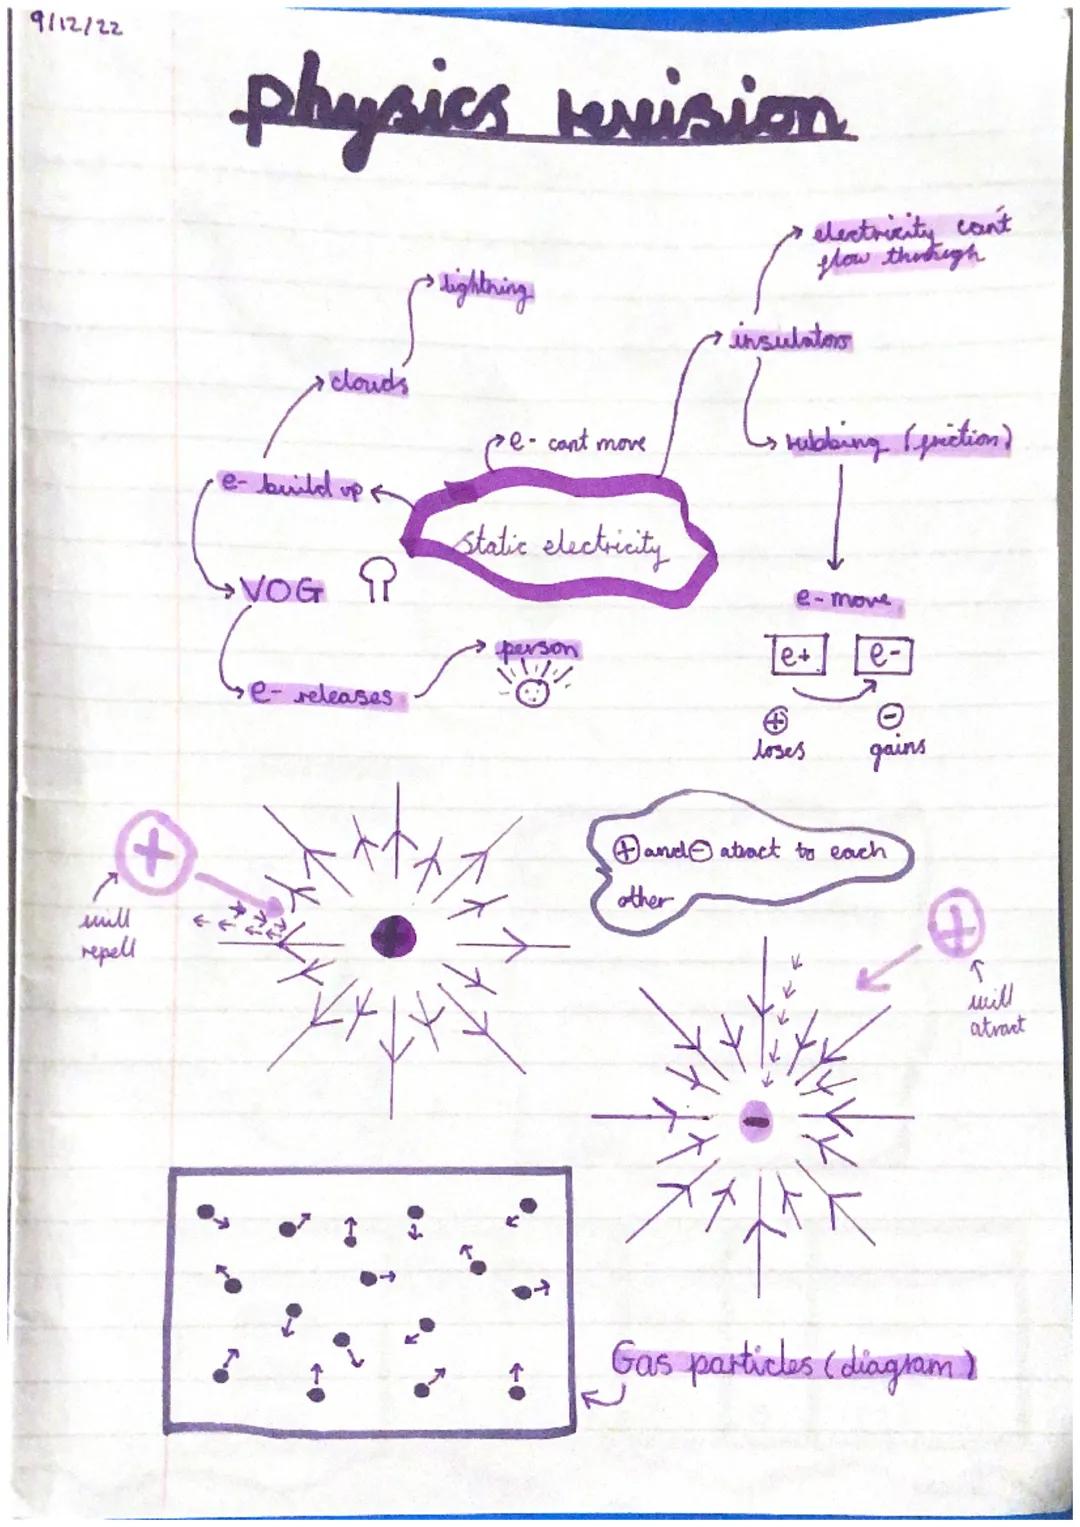 9/12/22
physics revision
electricity can't
flow through
lightning
insulators
clouds
e- cant move
rubbing (friction)
e- build up
static electricity
VOG
e- move
person
e+ e-
e- releases
+ -
loses gains
+
⊕ and ⊖ atract to each
other
will
repell
+
+
will
atract
-
Gas particles (diagram)